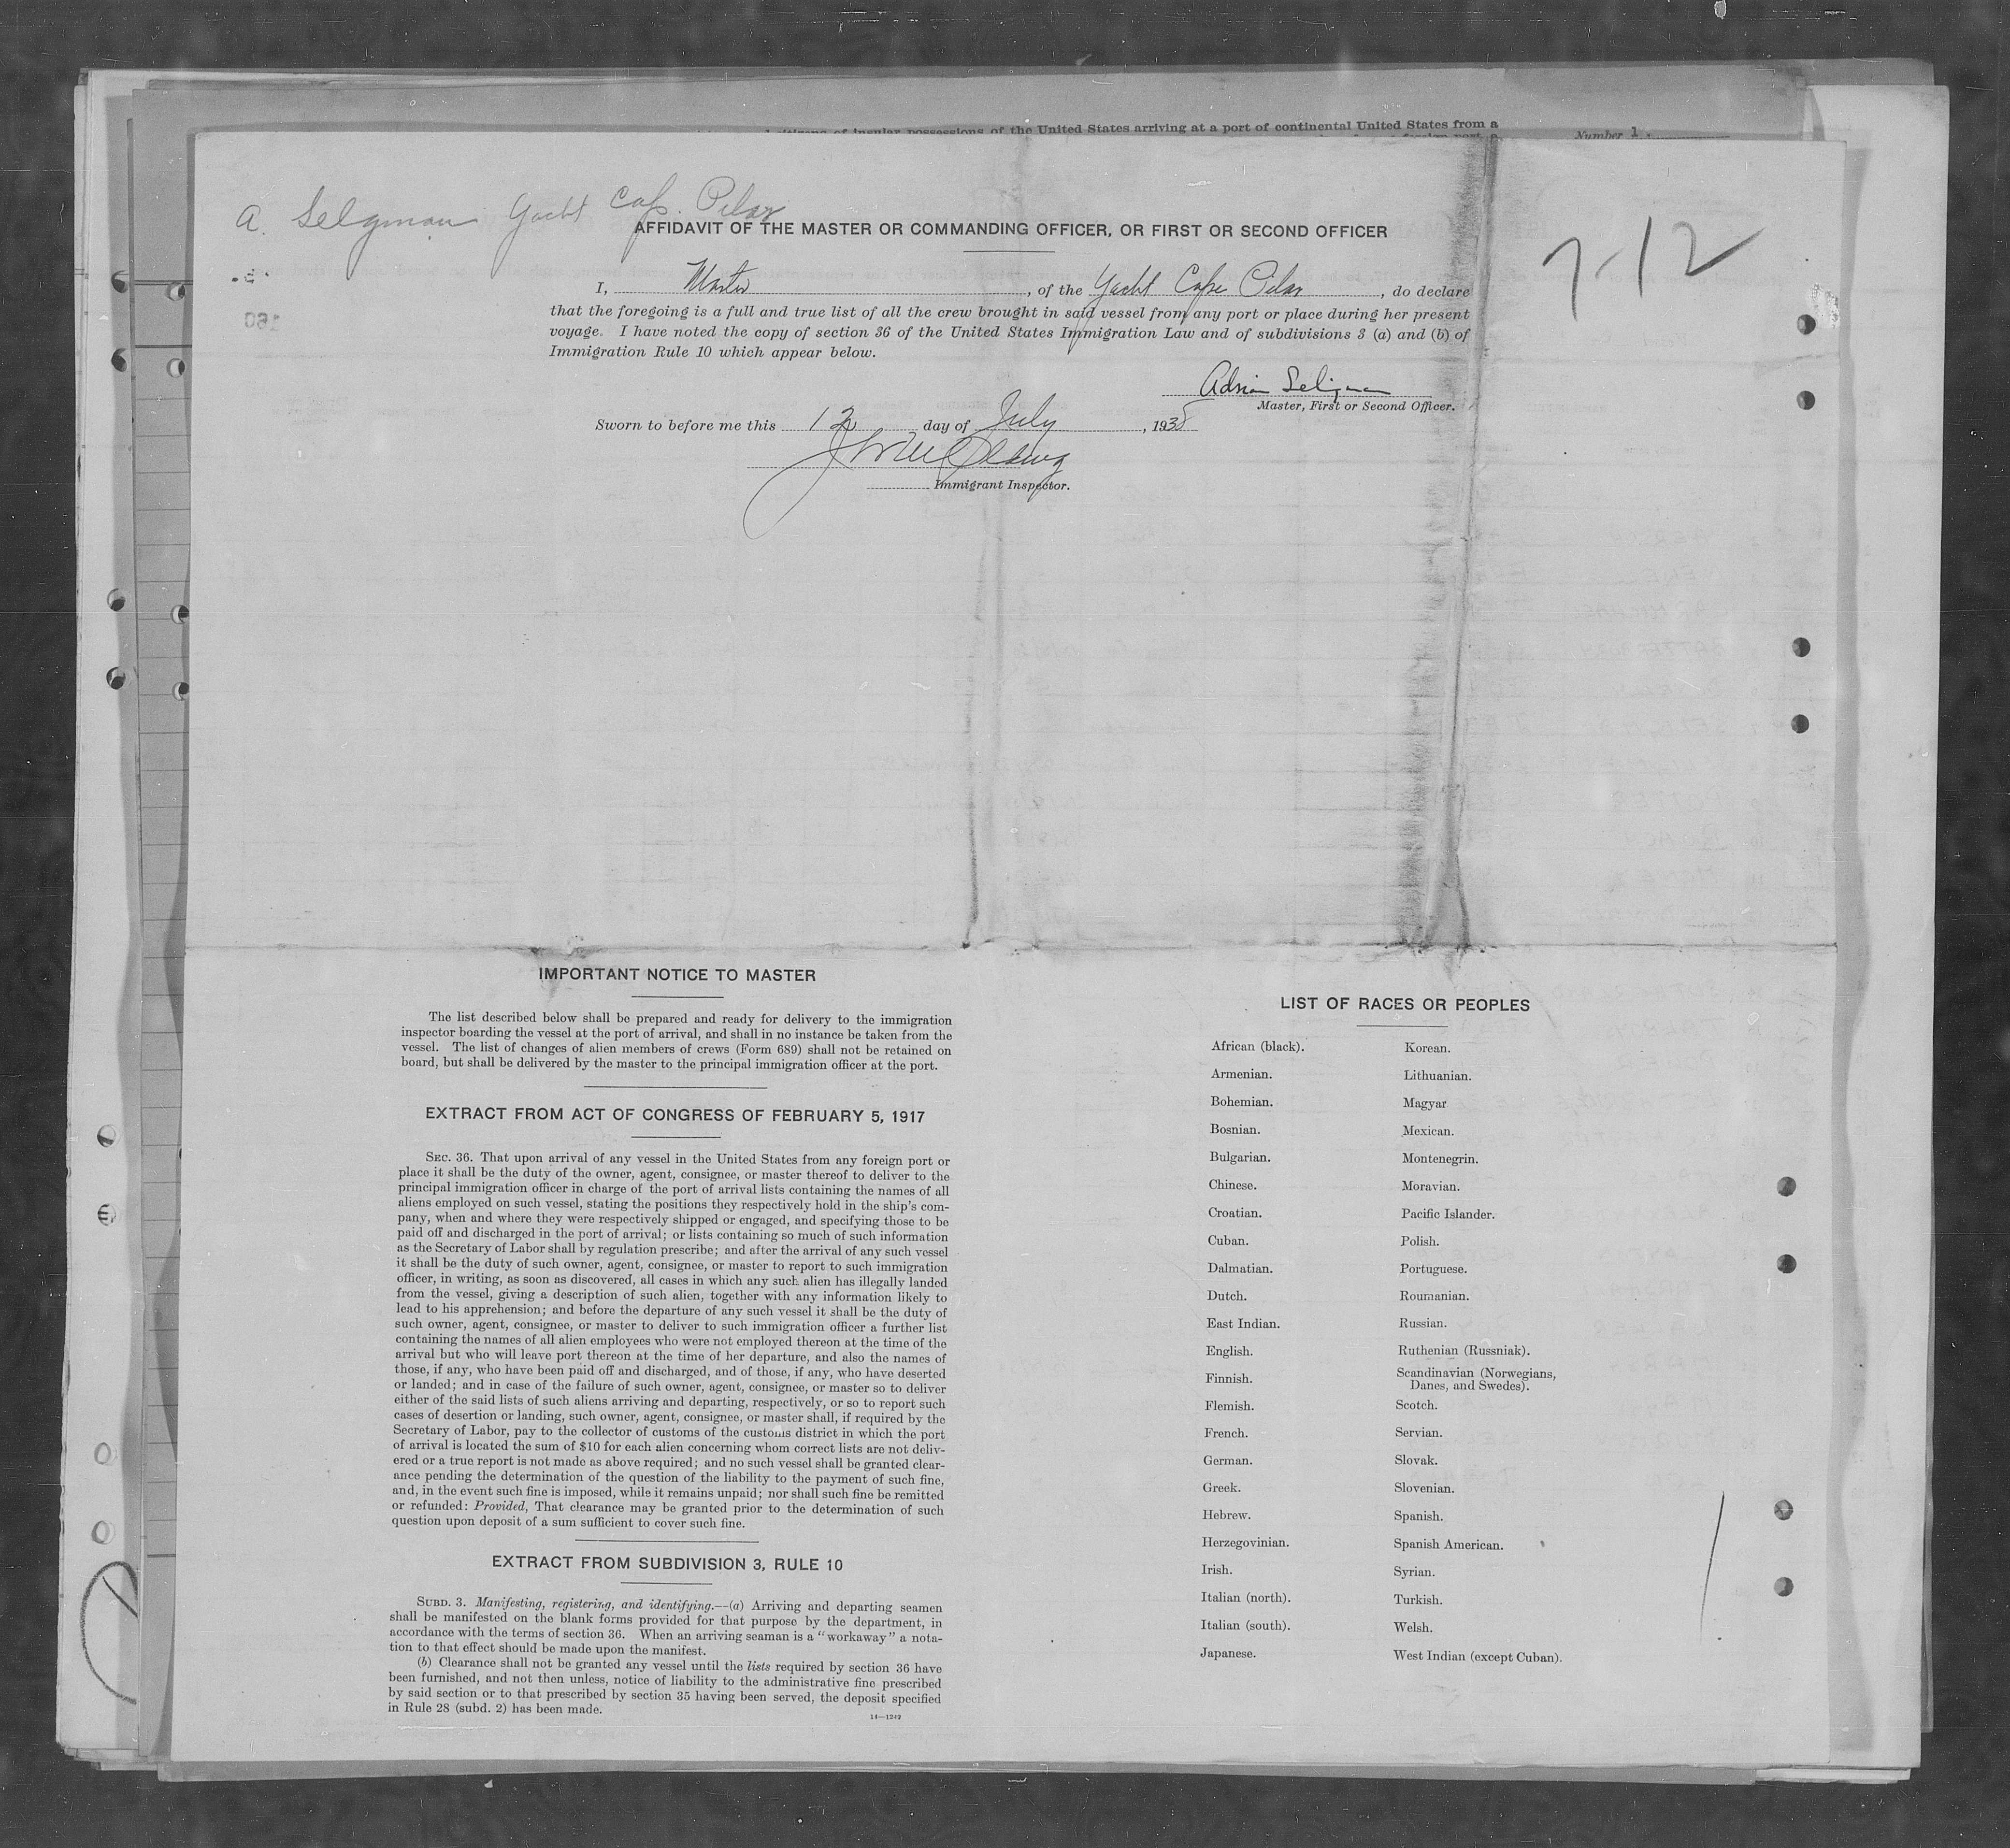 citizens of insular possessions of the United States arriving at a port of continental United States from a
Number 1
A. Seligman Yacht Cap. Pilar
7-12
AFFIDAVIT OF THE MASTER OR COMMANDING OFFICER, OR FIRST OR SECOND OFFICER
I, Master, of the Yacht Cape Pilar, do declare
that the foregoing is a full and true list of all the crew brought in said vessel from any port or place during her present
voyage. I have noted the copy of section 36 of the United States Immigration Law and of subdivisions 3 (a) and (b) of
Immigration Rule 10 which appear below.
Adrian Seligman
Master, First or Second Officer.
Sworn to before me this 12 day of July, 1938
Immigrant Inspector.
IMPORTANT NOTICE TO MASTER
The list described below shall be prepared and ready for delivery to the immigration
inspector boarding the vessel at the port of arrival, and shall in no instance be taken from the
vessel. The list of changes of alien members of crews (Form 689) shall not be retained on
board, but shall be delivered by the master to the principal immigration officer at the port.
EXTRACT FROM ACT OF CONGRESS OF FEBRUARY 5, 1917
SEC. 36. That upon arrival of any vessel in the United States from any foreign port or
place it shall be the duty of the owner, agent, consignee, or master thereof to deliver to the
principal immigration officer in charge of the port of arrival lists containing the names of all
aliens employed on such vessel, stating the positions they respectively hold in the ship's com-
pany, when and where they were respectively shipped or engaged, and specifying those to be
paid off and discharged in the port of arrival; or lists containing so much of such information
as the Secretary of Labor shall by regulation prescribe; and after the arrival of any such vessel
it shall be the duty of such owner, agent, consignee, or master to report to such immigration
officer, in writing, as soon as discovered, all cases in which any such alien has illegally landed
from the vessel, giving a description of such alien, together with any information likely to
lead to his apprehension; and before the departure of any such vessel it shall be the duty of
such owner, agent, consignee, or master to deliver to such immigration officer a further list
containing the names of all alien employees who were not employed thereon at the time of the
arrival but who will leave port thereon at the time of her departure, and also the names of
those, if any, who have been paid off and discharged, and of those, if any, who have deserted
or landed; and in case of the failure of such owner, agent, consignee, or master so to deliver
either of the said lists of such aliens arriving and departing, respectively, or so to report such
cases of desertion or landing, such owner, agent, consignee, or master shall, if required by the
Secretary of Labor, pay to the collector of customs of the customs district in which the port
of arrival is located the sum of $10 for each alien concerning whom correct lists are not deliv-
ered or a true report is not made as above required; and no such vessel shall be granted clear-
ance pending the determination of the question of the liability to the payment of such fine,
and, in the event such fine is imposed, while it remains unpaid; nor shall such fine be remitted
or refunded: Provided, That clearance may be granted prior to the determination of such
question upon deposit of a sum sufficient to cover such fine.
EXTRACT FROM SUBDIVISION 3, RULE 10
SUBD. 3. Manifesting, registering, and identifying.—(a) Arriving and departing seamen
shall be manifested on the blank forms provided for that purpose by the department, in
accordance with the terms of section 36. When an arriving seaman is a "workaway" a nota-
tion to that effect should be made upon the manifest.
(b) Clearance shall not be granted any vessel until the lists required by section 36 have
been furnished, and not then unless, notice of liability to the administrative fine prescribed
by said section or to that prescribed by section 35 having been served, the deposit specified
in Rule 28 (subd. 2) has been made.
14—1242
LIST OF RACES OR PEOPLES
African (black).
Armenian.
Bohemian.
Bosnian.
Bulgarian.
Chinese.
Croatian.
Cuban.
Dalmatian.
Dutch.
East Indian.
English.
Finnish.
Flemish.
French.
German.
Greek.
Hebrew.
Herzegovinian.
Irish.
Italian (north).
Italian (south).
Japanese.
Korean.
Lithuanian.
Magyar
Mexican.
Montenegrin.
Moravian.
Pacific Islander.
Polish.
Portuguese.
Roumanian.
Russian.
Ruthenian (Russniak).
Scandinavian (Norwegians,
Danes, and Swedes).
Scotch.
Servian.
Slovak.
Slovenian.
Spanish.
Spanish American.
Syrian.
Turkish.
Welsh.
West Indian (except Cuban).